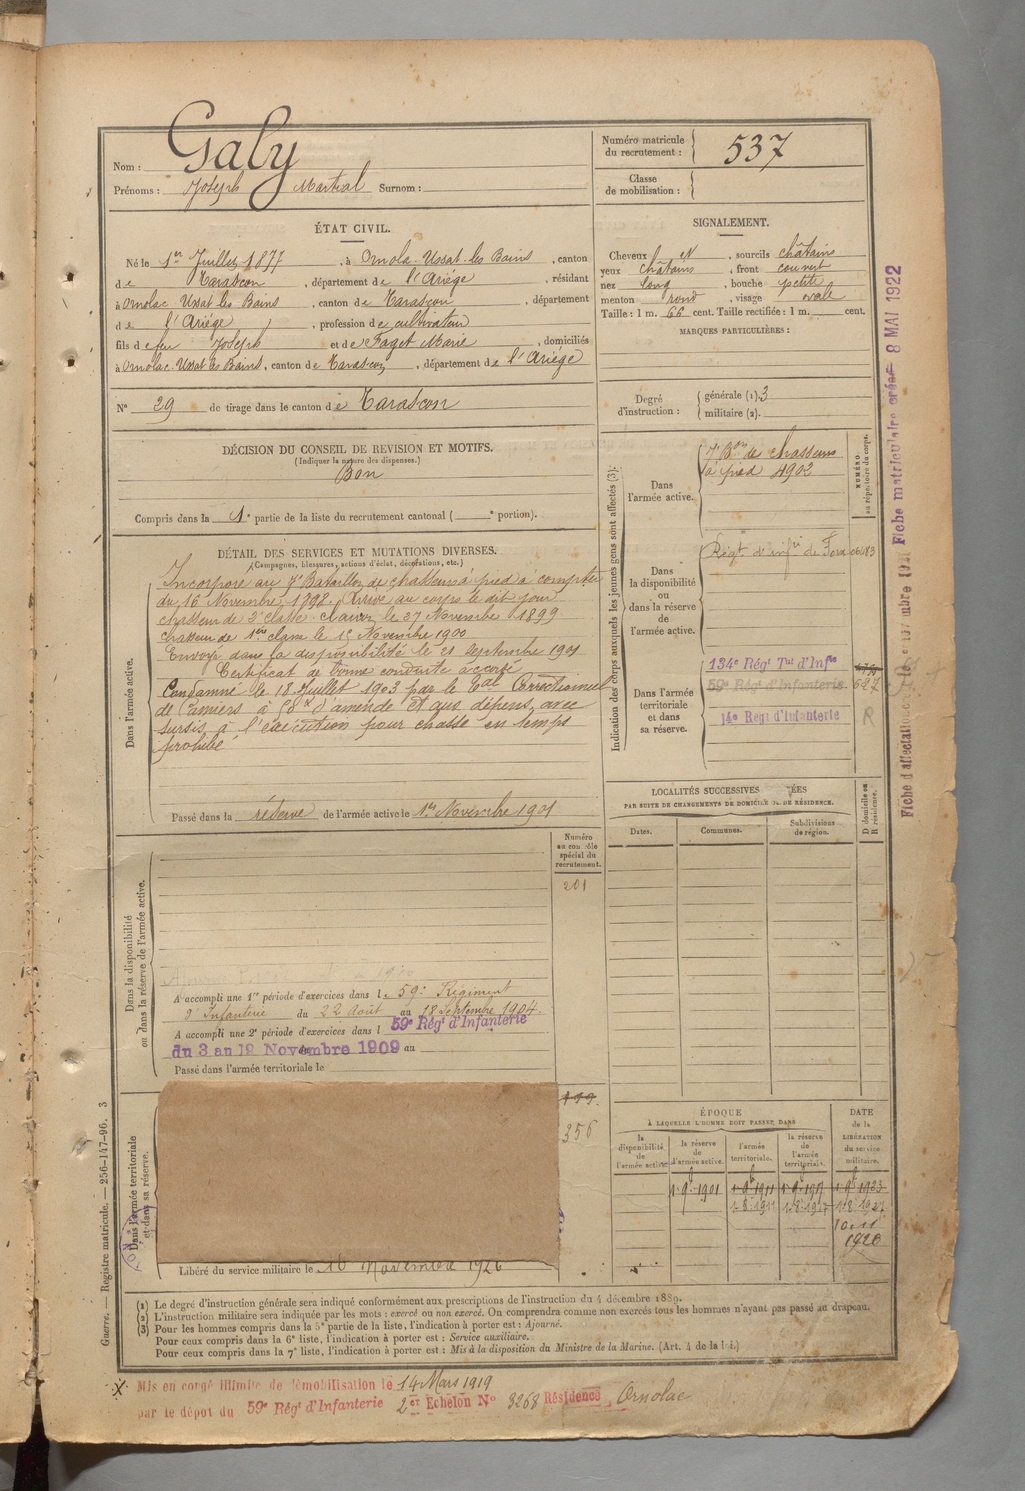 Nom : Galy
Prénoms : Joseph Martial Surnom :
Numéro matricule du recrutement : 537
Classe de mobilisation :
ÉTAT CIVIL.
Né le 1er Juillet 1877, à Ornola-Ussat-les Bains, canton
de Tarascon, département de l'Ariége, résidant
à Ornolac Ussat les Bains, canton de Tarascon, département
de l'Ariége, profession de cultivateur
fils de feu Joseph et de Faget Marie, domiciliés
à Ornolac-Ussat les Bains, canton de Tarascon, département de l'Ariége
N° 29 de tirage dans le canton de Tarascon
SIGNALEMENT.
Cheveux et, sourcils châtains
yeux châtains, front couvert
nez long, bouche petite
menton rond, visage ovale
Taille : 1 m. 66 cent. Taille rectifiée : 1 m. cent.
MARQUES PARTICULIÈRES :
Degré d'instruction : générale (1). 3
militaire (2).
DÉCISION DU CONSEIL DE REVISION ET MOTIFS.
(Indiquer la nature des dispenses.)
Bon
Compris dans la 1e partie de la liste du recrutement cantonal ( e portion).
DÉTAIL DES SERVICES ET MUTATIONS DIVERSES.
(Campagnes, blessures, actions d'éclat, décorations, etc.)
Dans l'armée active.
Incorporé au 7e Bataillon de chasseurs à pied à compter
du 16 Novembre 1898. Arrivé au corps le dit jour
chasseur de 2e classe. Clairon le 27 Novembre 1899
chasseur de 1ère classe le 1 Novembre 1900
Envoyé dans la disponibilité le 21 Septembre 1901
Certificat de bonne conduite accordé
Condamné le 18 Juillet 1903 par le Correctionnel
de Pamiers à d'amende et aux dépens, avec
sursis à l'exécution pour chasse en temps
prohibé
Passé dans la réserve de l'armée active le 1er Novembre 1901
Indication des corps auxquels les jeunes gens sont affectés (3).
NUMÉRO au répertoire du corps.
Dans l'armée active.
7e Bon de chasseurs
à pied 4902
Dans la disponibilité ou dans la réserve de l'armée active.
Régt d'infie de Foix
Dans l'armée territoriale et dans sa réserve.
134e Régt Tal d'Infie
59e Régt d'Infanterie 627
14e Régt d'Infanterie R
LOCALITÉS SUCCESSIVES ÉES
PAR SUITE DE CHANGEMENTS DE DOMICILE OU DE RÉSIDENCE.
Dates. Communes. Subdivisions de région. D domicile ou R résidence.
Dans la disponibilité ou dans la réserve de l'armée active.
Numéro au contrôle spécial du recrutement.
201
A accompli une 1re période d'exercices dans le 59e Régiment
d'Infanterie du 22 août au 18 Septembre 1904.
A accompli une 2e période d'exercices dans l 59e Régt d'Infanterie
du 3 au 19 Novembre 1909 au
Passé dans l'armée territoriale le
Dans l'armée territoriale et dans sa réserve.
199.
356
Libéré du service militaire le 10 Novembre 1926
ÉPOQUE
À LAQUELLE L'HOMME DOIT PASSER DANS
la disponibilité de l'armée active
la réserve de d'armée active.
l'armée territoriale.
la réserve de l'armée territoriale.
DATE de la LIBÉRATION du service militaire.
1 9b 1901 1 9b 1911 1 9b 1917 1 9b 1923
1926
(1) Le degré d'instruction générale sera indiqué conformément aux prescriptions de l'instruction du 4 décembre 1889.
(2) L'instruction militaire sera indiquée par les mots : exercé ou non exercé. On comprendra comme non exercés tous les hommes n'ayant pas passé au drapeau.
(3) Pour les hommes compris dans la 5e partie de la liste, l'indication à porter est : Ajourné.
Pour ceux compris dans la 6e liste, l'indication à porter est : Service auxiliaire.
Pour ceux compris dans la 7e liste, l'indication à porter est : Mis à la disposition du Ministre de la Marine. (Art. 4 de la loi.)
Guerre. — Registre matricule. — 256-147-96. 3
Mis en congé illimité de démobilisation le 14 Mars 1919
par le dépôt du 59e Régt d'Infanterie 2er Echelon N° 3268 Résidence Ornolac
Fiche matriculaire créée 8 MAI 1922